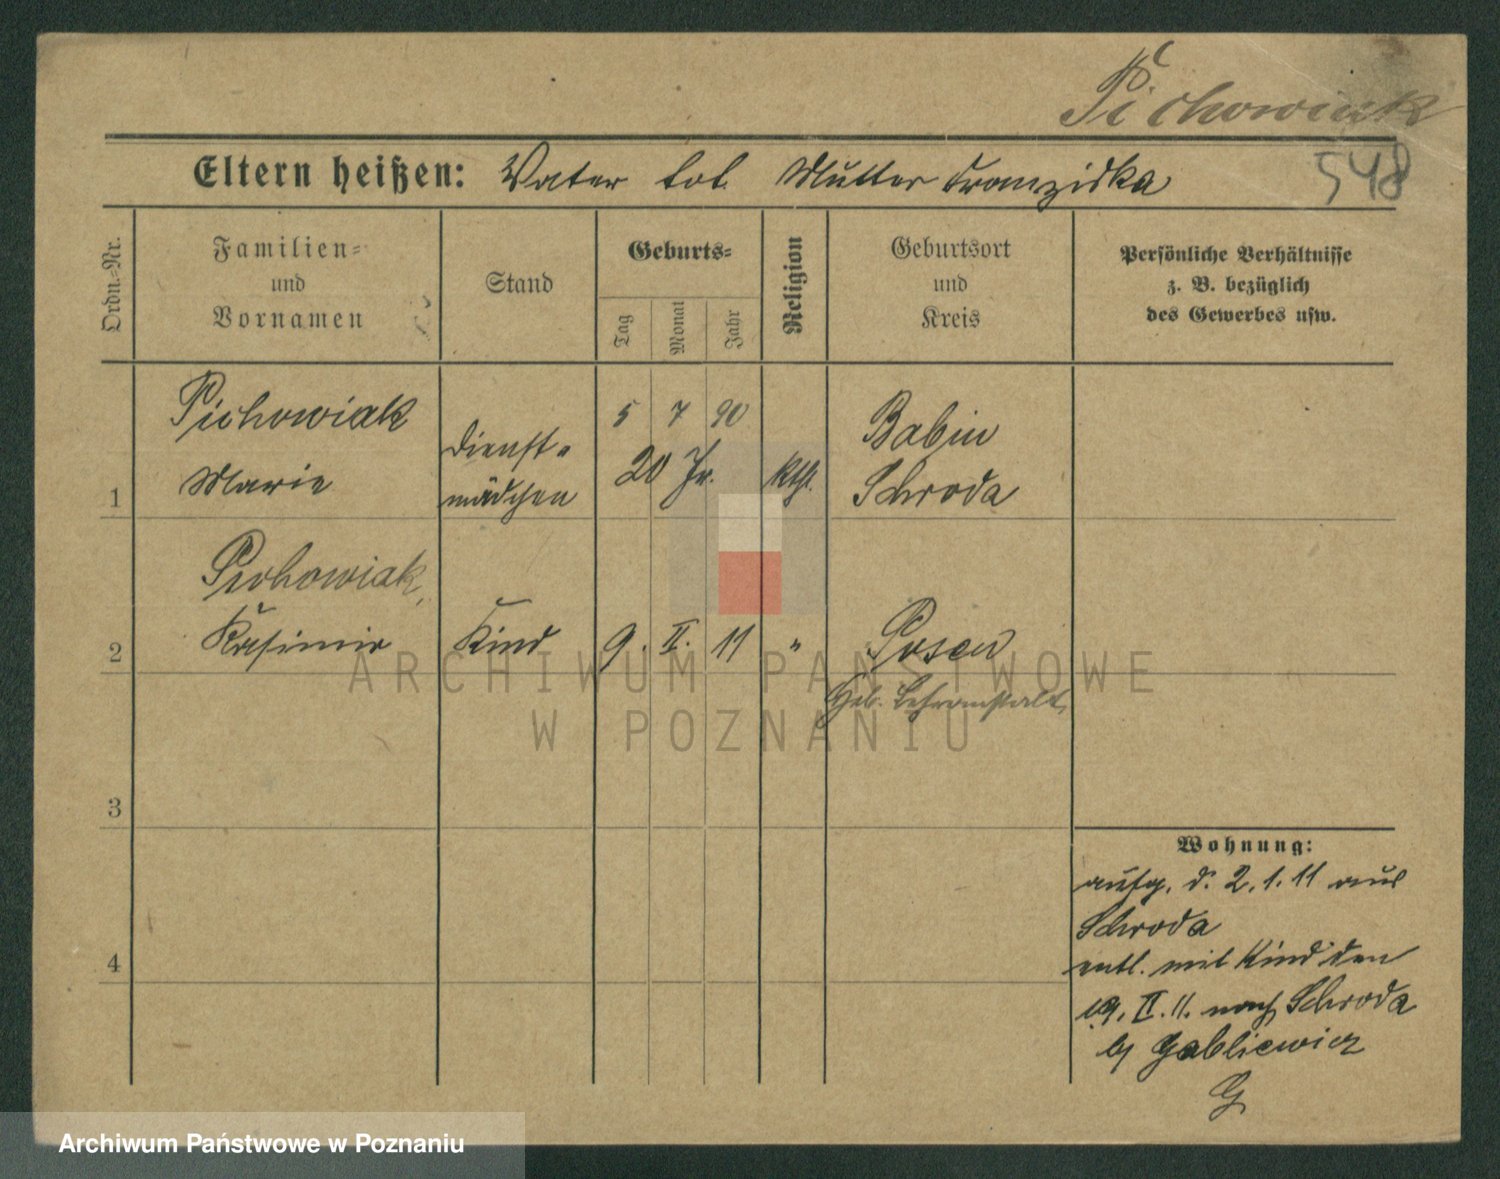 Pichowiak
Eltern heißen: Vater tot. Mutter Franziska
548
Ordn.-Nr.
Familien-
und
Vornamen
Stand
Geburts-
Tag
Monat
Jahr
Religion
Geburtsort
und
Kreis
Persönliche Verhältnisse
z. B. bezüglich
des Gewerbes usw.
1
Pichowiak
Marie
Dienst-
mädchen
5 7 90
20 Jr.
kth.
Babin
Schroda
2
Pichowiak,
Kasimir
Kind
9. II. 11
"
Posen
Heb. Lehranstalt
3
4
Wohnung:
aufg. d. 2.1.11 aus
Schroda
entl. mit Kind den
19. II. 11. nach Schroda
G
ARCHIWUM PAŃSTWOWE
W POZNANIU
Archiwum Państwowe w Poznaniu